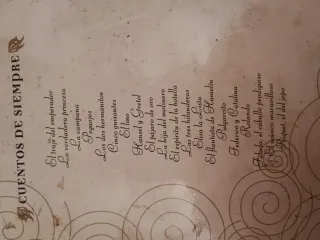 CUENTOS DE SIEMPRE
El traje del emperador
La verdadera princesa
La campana
Pequejos
Los dos hermanitos
Cinco guisantes
El lino
Hansel y Gretel
El pájaro de oro
La hija del molinero
El espíritu de la botella
Las tres hilanderas
Elisa la Lista
El flautista de Hamelín
Pulgarcito
Federico y Catalina
Falada, el caballo prodigioso
El músico maravilloso